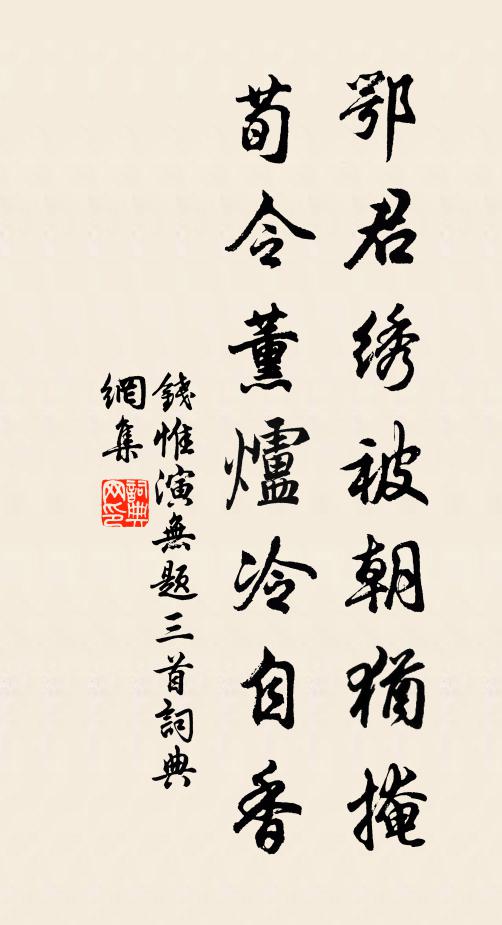 鄂君绣被朝猶掩
荀令薰爐冷自香
錢惟演無题三首詞典
網集
詞典
网印